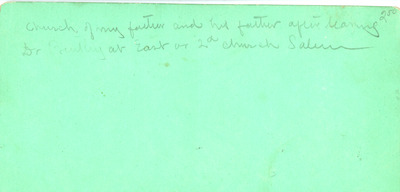 Church of my father and his father after leaving 250
Dr at East or 2d church Salem